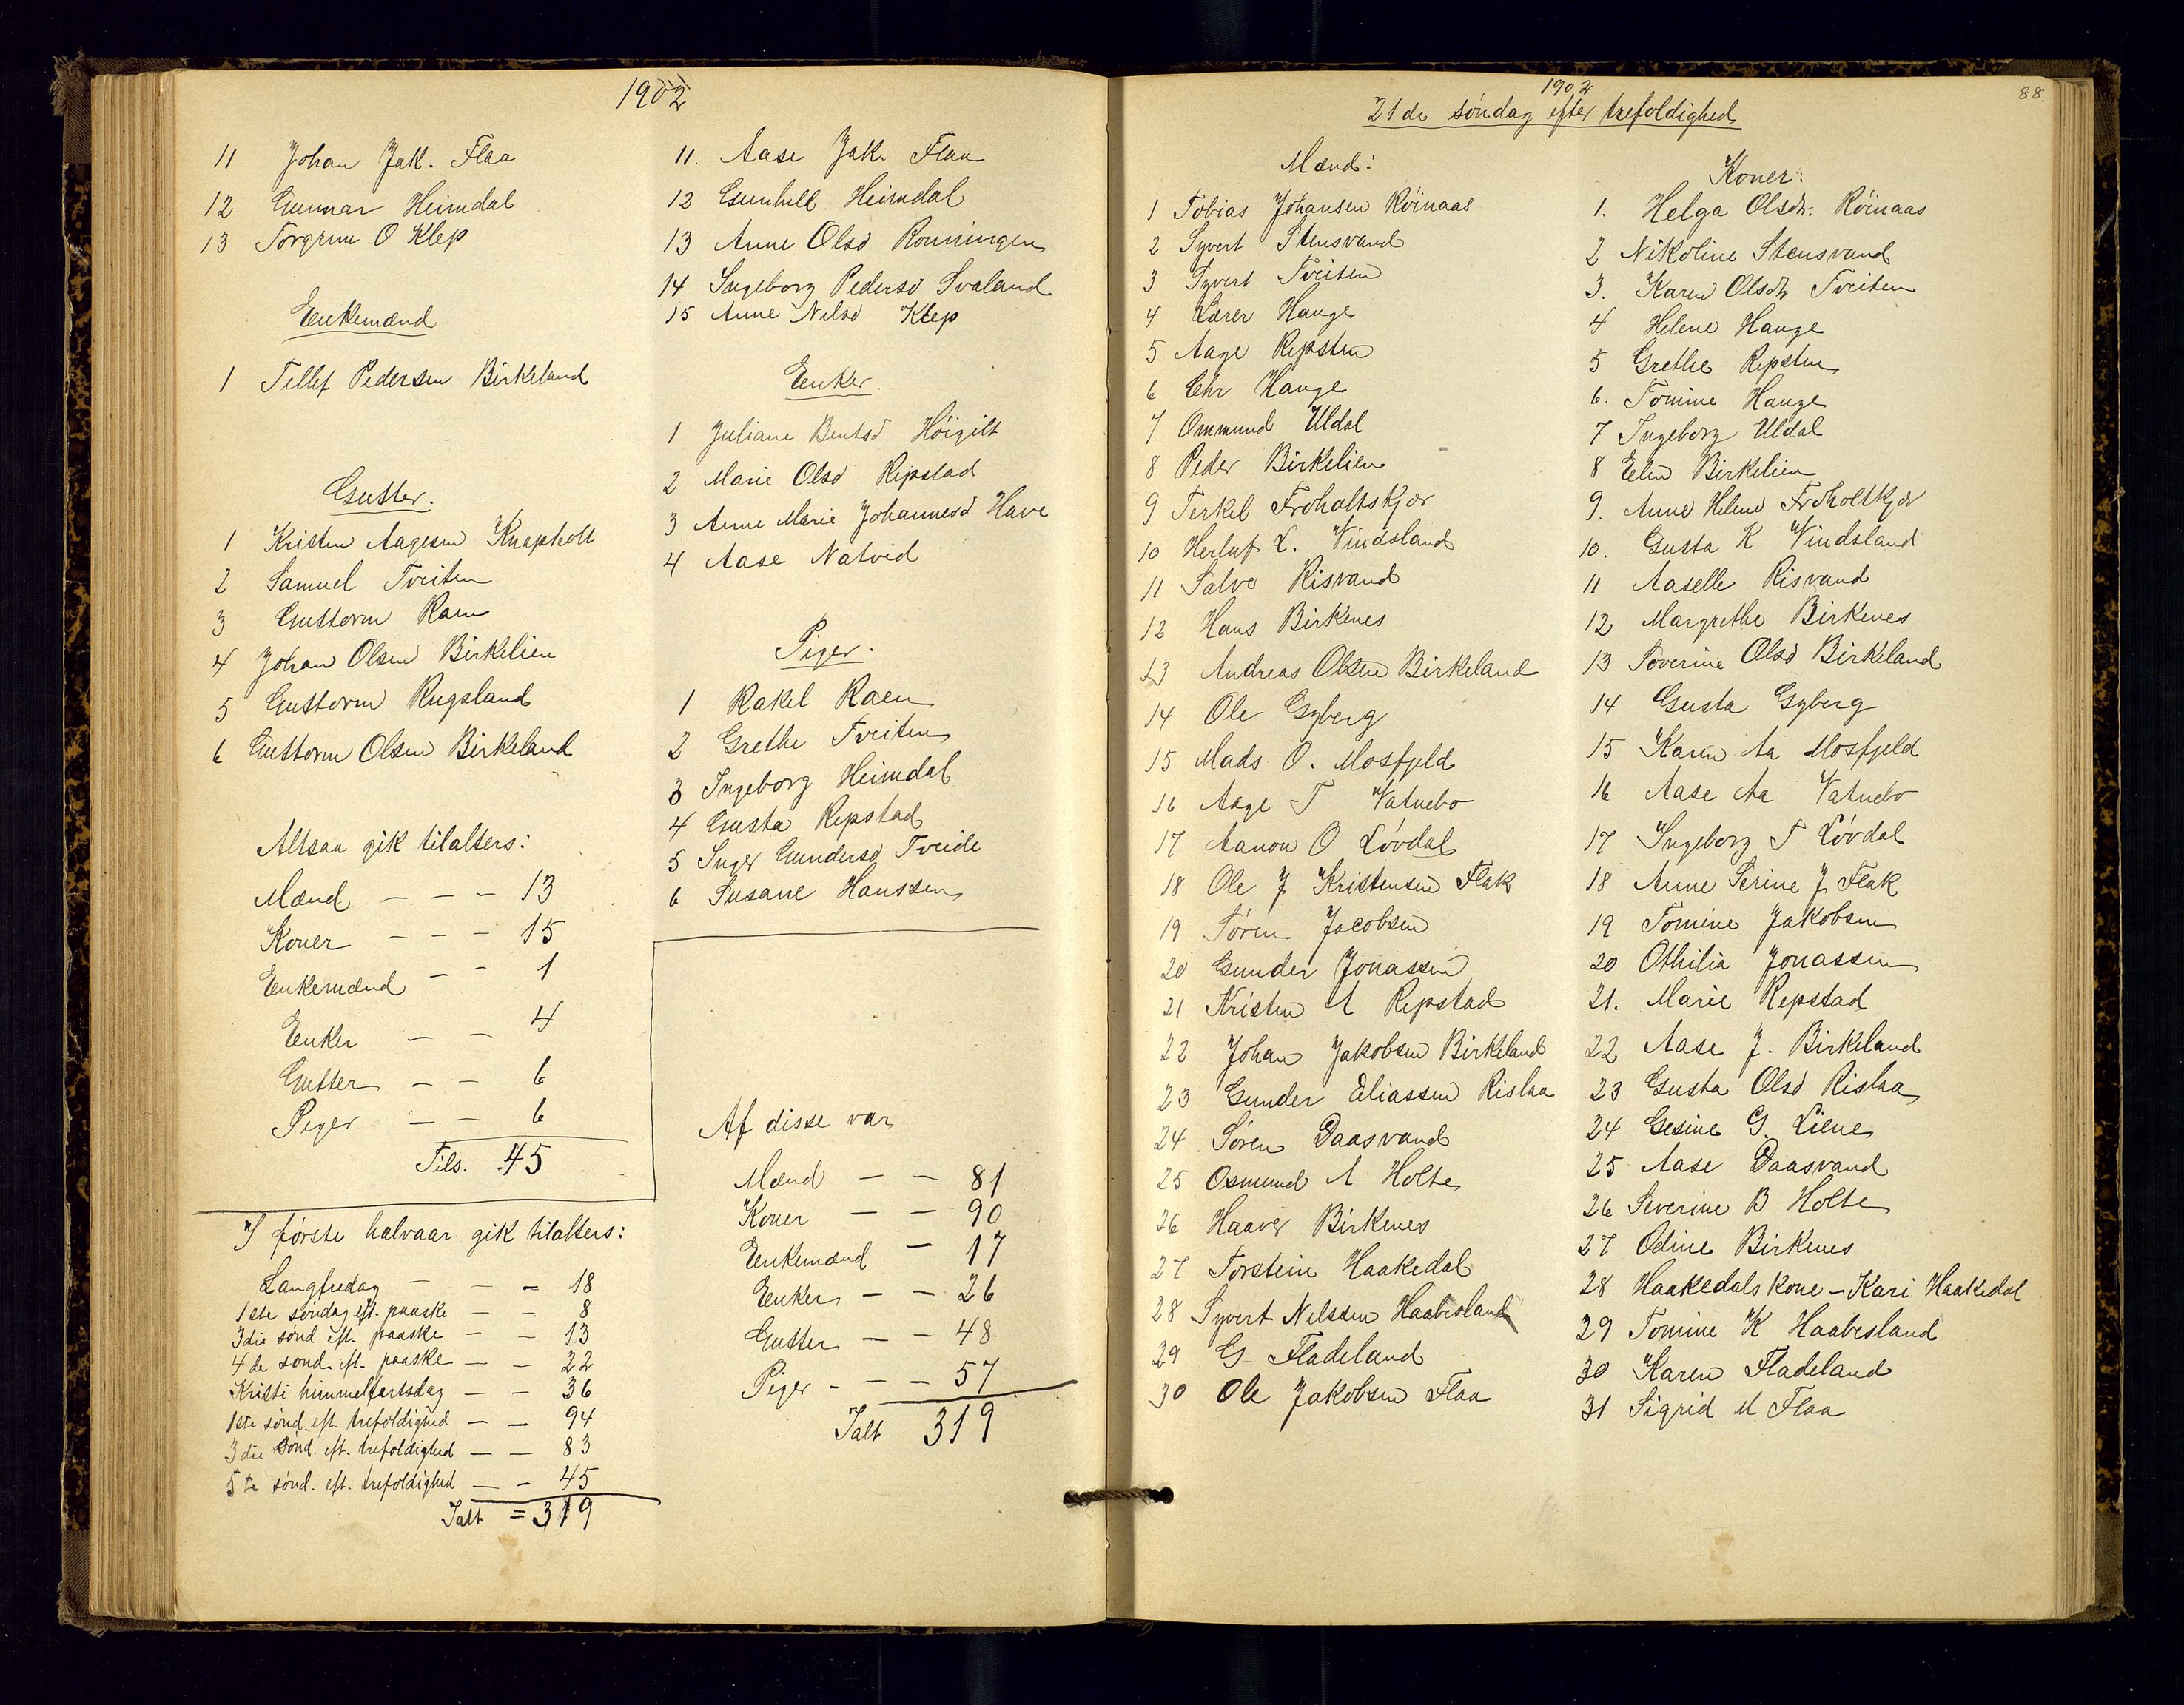 1902
11 Johan Jak. Flaa
12 Gunnar Heimdal
13 Torgrim O Klep
Enkemænd
1 Tellef Pedersen Birkeland
Gutter.
1 Kristen Aagesen Knapholt
2 Samuel Tveiten
3 Guttorm Raen
4 Johan Olsen Birkelien
5 Guttorm Rugsland
6 Guttorm Olsen Birkeland
Altsaa gik tilalters:
Mænd — — — 13
Koner — — — 15
Enkemænd — — 1
Enker — — 4
Gutter — — 6
Piger — — 6
Tils. 45
I første halvaar gik tilalters:
Langfredag — — — 18
1ste søndag eft. paaske — — 8
3die sønd eft. paaske — — 13
4de sønd. eft. paaske — — 22
Kristi himmelfartsdag — — 36
1ste sønd. eft. trefoldighed — — 94
3die sønd. eft. trefoldighed — — 83
5te sønd. eft. trefoldighed — — 45
Ialt = 319
11. Aase Jak. Flaa
12 Gunhild Heimdal
13 Anne Olsd Rønningen
14 Ingeborg Pedersd Svaland
15 Anne Nilsd Klep
Enker.
1 Juliane Bentsd Høigilt
2 Marie Olsd Repstad
3 Anne Marie Johannesd Have
4 Aase Natvid
Piger.
1 Rakel Raen
2 Grethe Tveiten
3 Ingeborg Heimdal
4 Gusta Repstad
5 Inger Gundersd Tveide
6 Susane Hanssen
Af disse var
Mænd — — 81
Koner — — 90
Enkemænd — 17
Enker — — 26
Gutter — — 48
Piger - — — 57
Ialt 319
88.
1902
21de søndag efter trefoldighed
Mænd:
1 Tobias Johansen Röinaas
2 Syvert Stensvand
3 Syvert Tveiten
4 Lærer Hauge
5 Aage Repsten
6 Chr Hauge
7 Ommund Uldal
8 Peder Birkelien
9 Terkel Froholtskjær
10 Herluf L. Vindsland
11 Salve Risvand
12 Hans Birkenes
13 Andreas Olsen Birkeland
14 Ole Gyberg
15 Mads O. Mosfjeld
16 Aage T Vatnebo
17 Aanon O Løvdal
18 Ole J Kristensen Flak
19 Søren Jacobsen
20 Gunder Jonassen
21 Kristen A Repstad
22 Johan Jakobsen Birkeland
23 Gunder Eliassen Rislaa
24 Søren Daasvand
25 Osmund A Holte
26 Haaver Birkenes
27 Torstein Haakedal
28 Syvert Nelssen Haabesland
29 G. Fladeland
30 Ole Jakobsen Flaa
Koner:
1. Helga Olsdr. Röinaas
2 Nikoline Stensvand
3. Karen Olsdr Tveiten
4 Helene Hauge
5 Grethe Repsten
6. Tomine Hauge
7 Ingeborg Uldal
8 Elen Birkelien
9. Anne Helene Froholtkjær
10. Gusta K Vindsland
11 Aaselle Risvand
12 Margrethe Birkenes
13 Severine Olsd Birkeland
14 Gusta Gyberg
15 Karen Aa Mosfjeld
16 Aase Aa Vatnebo
17 Ingeborg T Løvdal
18 Anne Serine J. Flak
19 Tomine Jakobsen
20 Othilia Jonassen
21. Marie Repstad
22 Aase J. Birkeland
23 Gusta Olsd Rislaa
24 Gesine G. Liene
25 Aase Daasvand
26 Severine B Holte
27 Odine Birkenes
28 Haakedals kone - Kari Haakedal
29 Tomine K Haabesland
30 Karen Fladeland
31 Sigrid M Flaa